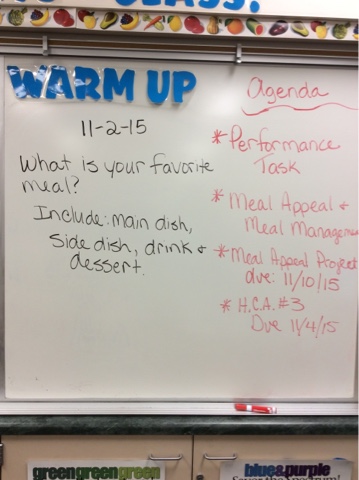 CLASS!
WARM UP
11-2-15
What is your favorite
meal?
Include: main dish,
side dish, drink &
dessert.
Agenda
* Performance
Task
* Meal Appeal &
Meal Manageme
* Meal Appeal Project
due: 11/10/15
* H.C.A. #3
Due 11/4/15
greengreengreen
blue&purple